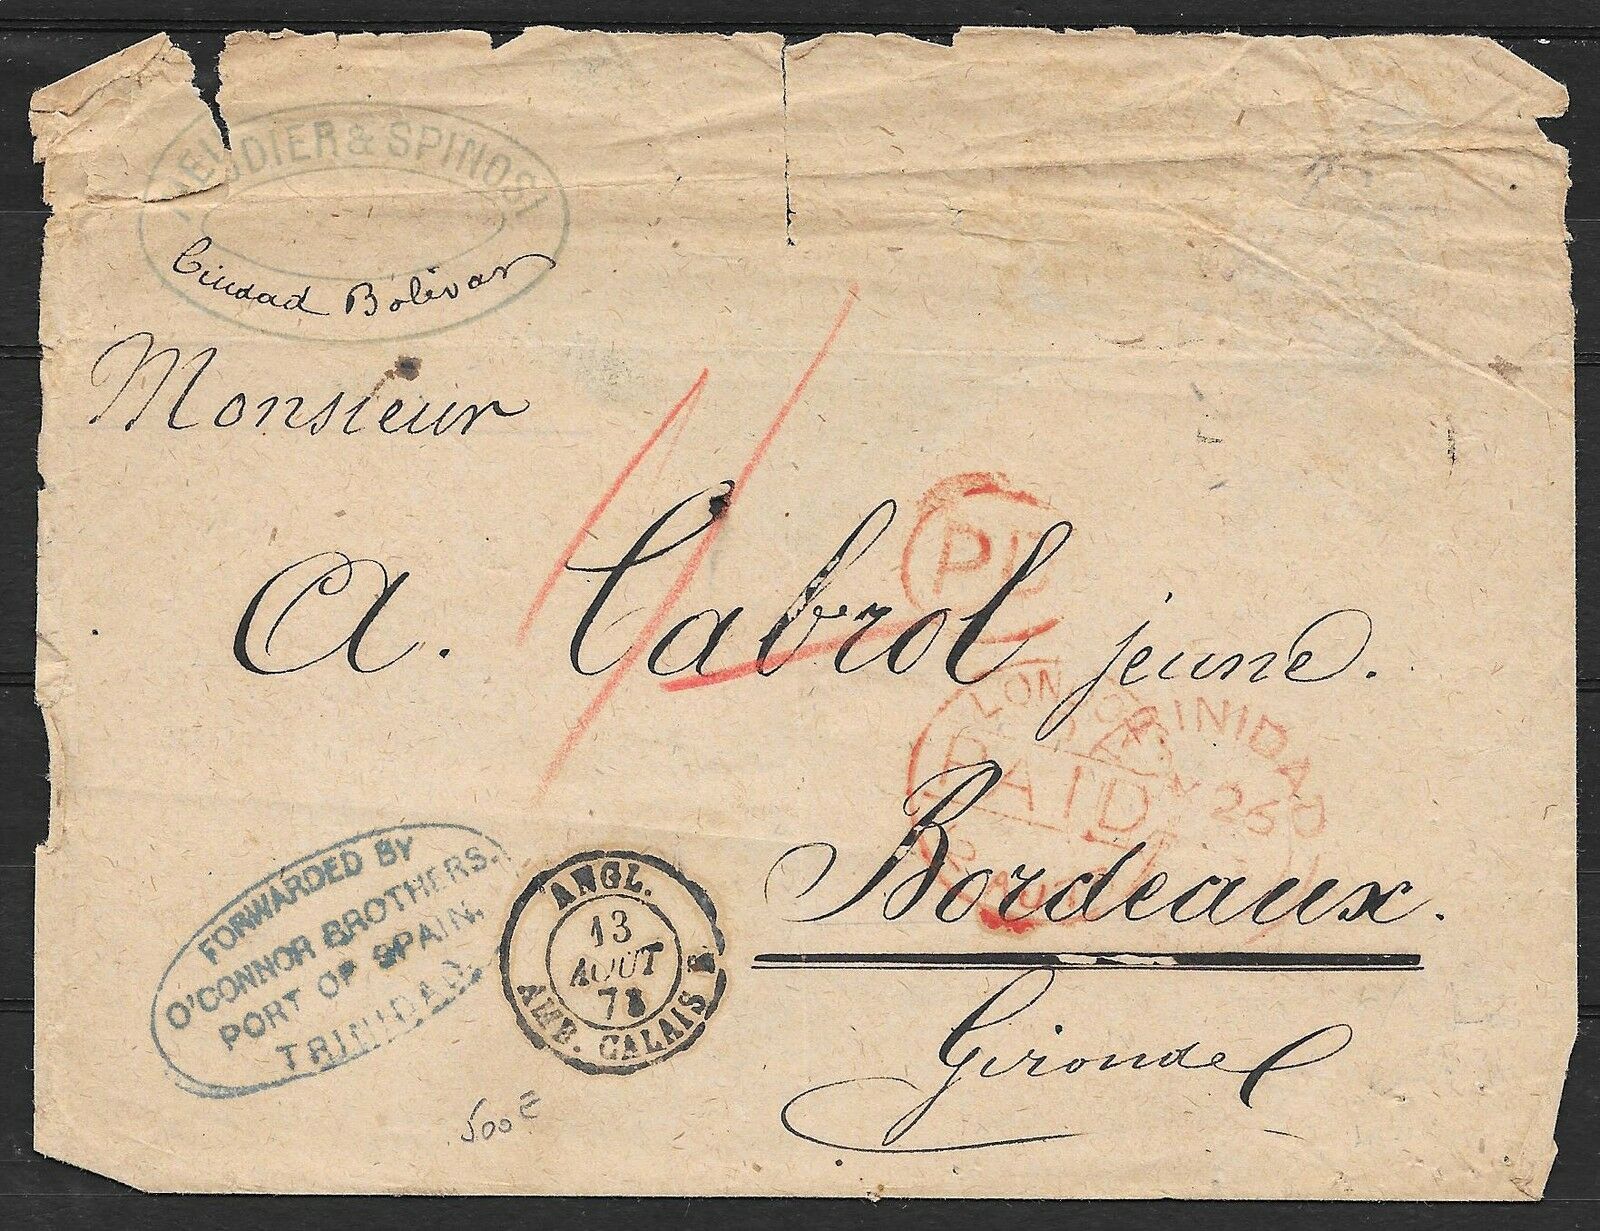 & SPINOSI
Ciudad Bolivar
Monsieur
A. Cabrol jeune.
PD
LONDON
PAID
TRINIDAD
26
Bordeaux.
Gironde
FORWARDED BY
O'CONNOR BROTHERS.
PORT OF SPAIN.
TRINIDAD.
ANGL.
13
AOUT
73
AMB. CALAIS
500